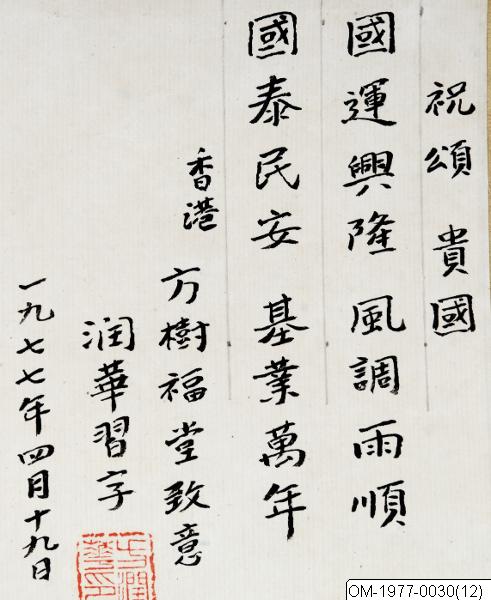 祝頌 貴國
國運興隆 風調雨順
國泰民安 基業萬年
香港 方樹福堂致意
润華習字
一九七七年四月十九日
方潤華印
OM-1977-0030(12)